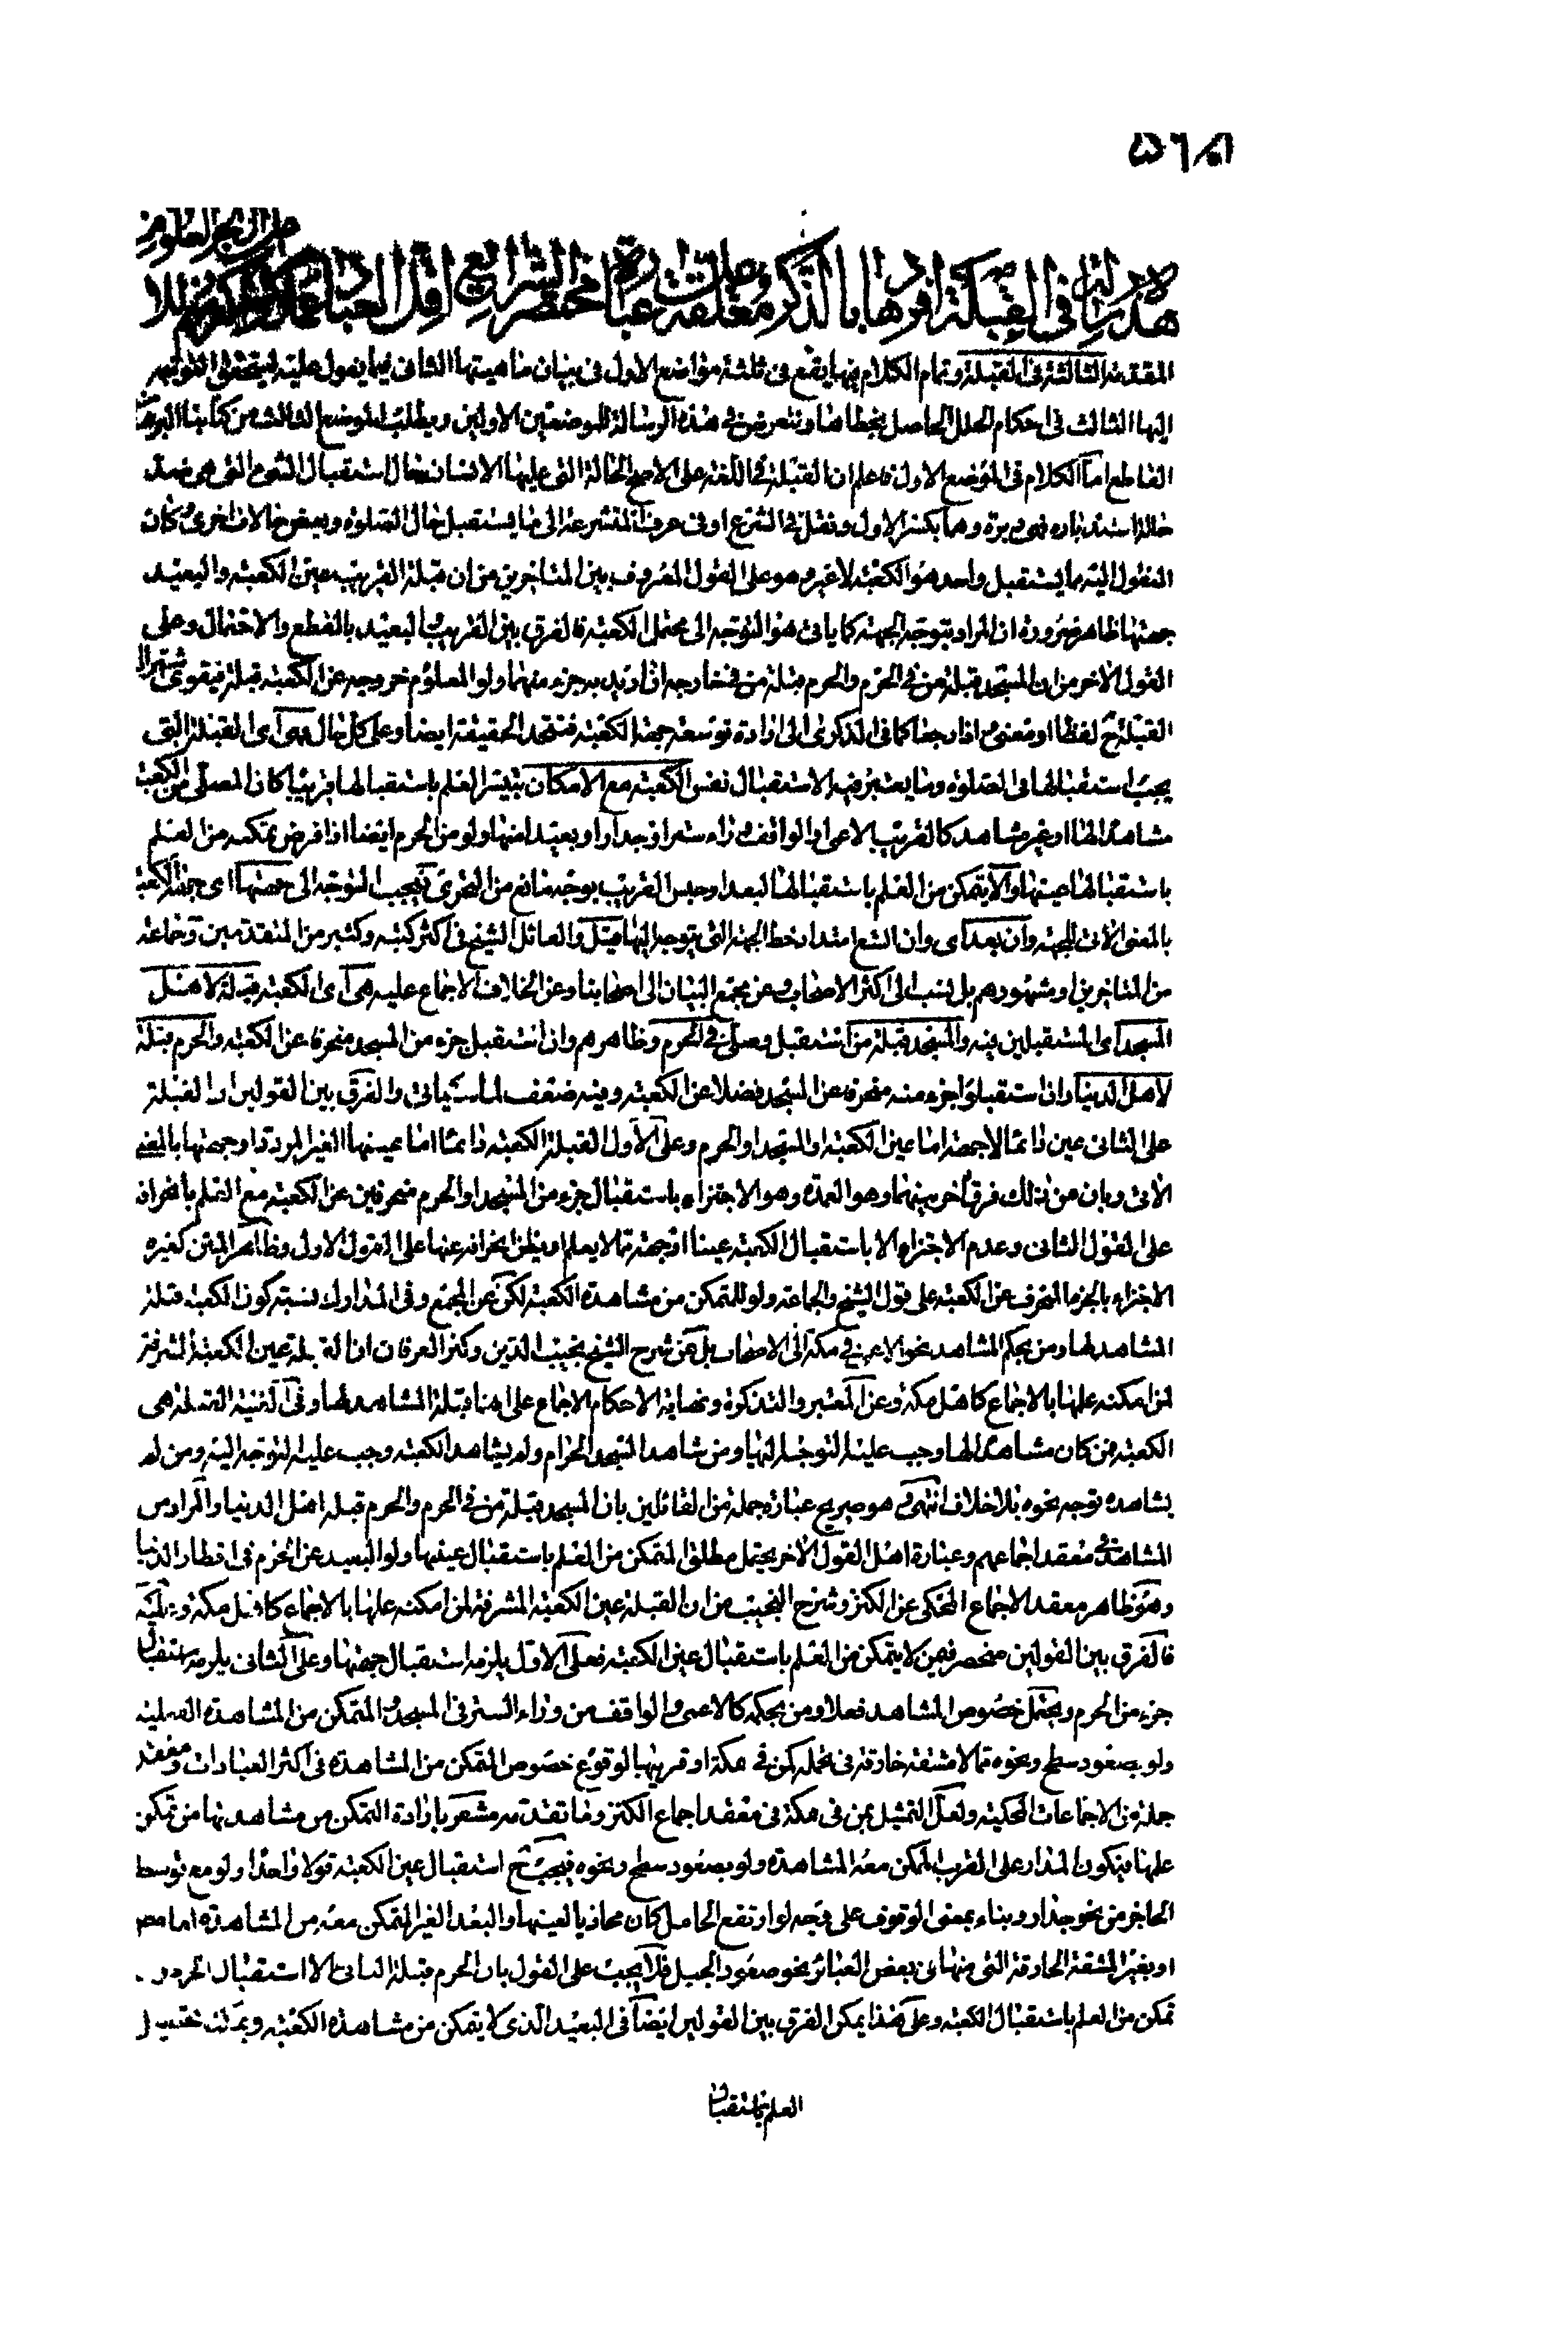 هذه رسالة في القبلة افردها بالذكر وجعلت معلقة عبارة مختصر الشرايع اقل العباد
المقدمة الثالثة في القبلة وتمام الكلام فيها يقع في ثلثة مواضع الاول في بيان ماهيتها الثاني فيما يعول عليه ليتحقق التوجه
اليها الثالث في احكام الخلل الحاصل بخطائها ونتعرض في هذه الرسالة للموضعين الاولين ويطلب الموضع الثالث من كتابنا البرهان
القاطع اما الكلام في الموضع الاول فاعلم ان القبلة في اللغة على الاصح الحالة التي عليها الانسان حال استقبال الشيء التي هي ضد
حالة استدباره فهي دبرة وهما بكسر الاول ونقل في الشرع او في عرف المتشرعة الى ما يستقبل حال الصلوة وبعض حالات اخرى وكان
المنقول اليه ما يستقبل واحد هو الكعبة لا غير وهو على القول المعروف بين المتاخرين من ان قبلة القريب عين الكعبة والبعيد
جهتها ظاهر ضرورة ان المراد بتوجه الجهة كما ياتي هو التوجه الى محتمل الكعبة فالفرق بين القريب والبعيد بالقطع والاحتمال وعلى
القول الاخر من ان المسجد قبلة من في الحرم والحرم قبلة من في خارجه ان اريد به جزء منهما ولو المعلوم خروجه عن الكعبة قبلة فيقوى
القبلة ح لفظا او معنى واذا رجعنا كما في الذكرى الى ارادة توسعة جهة الكعبة فتتحد الحقيقة ايضا وعلى كل حال فهي اي القبلة التي
يجب استقبالها في الصلوة وما يعتبر فيه الاستقبال نفس الكعبة مع الامكان بتيسر العلم باستقبالها قريبا كان المصلي من الكعبة
مشاهدا لها او غير مشاهد كالقريب الاعمى او الواقف وراء ستر او جدار او بعيدا منها ولو من الحرم ايضا اذا فرض تمكنه من العلم
باستقبالها عينها والا يتمكن من العلم باستقبالها لبعد او حبس القريب بوجه مانع من التحري فيجب التوجه الى جهتها اي جهة الكعبة
بالمعنى الاتي للجهة وان بعد اي وان اتسع امتداد خط الجهة التي يتوجه اليها وقيل والقائل الشيخ في اكثر كتبه وكثير من المتقدمين وجماعة
من المتاخرين او مشهورهم بل نسب الى اكثر الاصحاب وعن مجمع البيان الى اصحابنا وعن الخلاف الاجماع عليه هي اي الكعبة قبلة لاهل
المسجد اي المستقبلين فيه والمسجد قبلة من استقبل وصلى في الحرم وظاهرهم وان استقبل جزء من المسجد منحرفا عن الكعبة والحرم قبلة
لاهل الدنيا وان استقبلوا جزء منه منحرفا عن المسجد فضلا عن الكعبة وفيه ضعف لما سياتي والفرق بين القولين ان القبلة
على الثاني عين دائما لا جهة اما عين الكعبة او المسجد او الحرم وعلى الاول القبلة الكعبة دائما اما عينها الغير المرددة او جهتها بالمعنى
الاتي وبان من ذلك فرق اخر بينهما وهو العمدة وهو الاجتزاء باستقبال جزء من المسجد او الحرم منحرفين عن الكعبة مع العلم بانحرافه
على القول الثاني وعدم الاجتزاء الا باستقبال الكعبة عينا او جهة مما لا يعلم او يظن انحرافه عنها على القول الاول وظاهر المتن كغيره
الاجتزاء بالجزء المنحرف عن الكعبة على قول الشيخ والجماعة ولو للمتمكن من مشاهدة الكعبة لكن عن المجمع وفي المدارك نسبة كون الكعبة قبلة
المشاهد لها ومن بحكم المشاهد نحو الاعمى في مكة الى الاصحاب بل عن شرح الشيخ نجيب الدين وكنز العرفان ان القبلة عين الكعبة المشرفة
لمن امكنه علمها بالاجماع كاهل مكة وعن المعتبر والتذكرة ونهاية الاحكام الاجماع على انها قبلة المشاهد لها وفي الغنية القبلة هي
الكعبة فمن كان مشاهدا لها وجب عليه التوجه اليها ومن شاهد المسجد الحرام ولم يشاهد الكعبة وجب عليه التوجه اليه ومن لم
يشاهده توجه نحوه بلا خلاف انتهى وهو صريح عبارة جملة من القائلين بان المسجد قبلة من في الحرم والحرم قبلة اهل الدنيا والمراد من
المشاهد في معقد اجماعهم وعبارة اهل القول الاخر يحتمل مطلق المتمكن من العلم باستقبال عينها ولو البعيد عن الحرم في اقطار الدنيا
وهو ظاهر معقد الاجماع المحكي عن الكنز وشرح النجيب من ان القبلة عين الكعبة المشرفة لمن امكنه علمها بالاجماع كاهل مكة
فالفرق بين القولين منحصر فيمن لا يتمكن من العلم باستقبال عين الكعبة فعلى الاول يلزمه استقبال جهتها وعلى الثاني يلزمه استقبال
جزء من الحرم ويحتمل خصوص المشاهد فعلا ومن بحكمه كالاعمى والواقف من وراء الستر في المسجد والمتمكن من المشاهدة الفعلية
ولو بصعود سطح ونحوه مما لا مشقة خارقة في تحمله كمن في مكة او قريبها لوقوع خصوص المتمكن من المشاهدة في اكثر العبارات ومعقد
جملة من الاجماعات المحكية ولعل التمثيل بمن في مكة في معقد اجماع الكنز وما تقدمه مشعر بارادة التمكن من مشاهدتها من تمكن
علمها فيكون المدار على القرب الممكن معه المشاهدة ولو بصعود سطح ونحوه فيجب ح استقبال عين الكعبة قولا واحدا ولو مع توسط
الحاجز من نحو جدار وبناء بمعنى الوقوف على وجه لو ارتفع الحاصل كان محاذيا لعينها والبعد الغير المتمكن معه من المشاهدة اما
او بغير المشقة الخارقة التي منها في بعض العبائر نحو صعود الجبل فلا يجب على القول بان الحرم قبلة النائي الا استقبال الحرم
تمكن من العلم باستقبال الكعبة وعلى هذا يمكن الفرق بين القولين ايضا في البعيد الذي لا يتمكن من مشاهدة الكعبة
العلم باستقبال